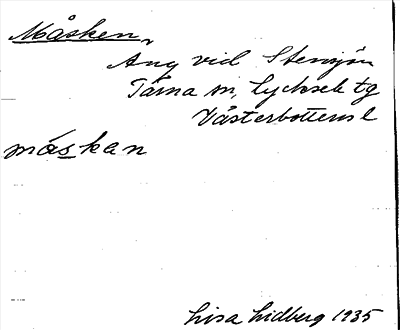 Måsken,
Äng vid Stensjön
Tärna sn, Lycksele tg
Västerbottens l
måskan
Lisa Lidberg 1935